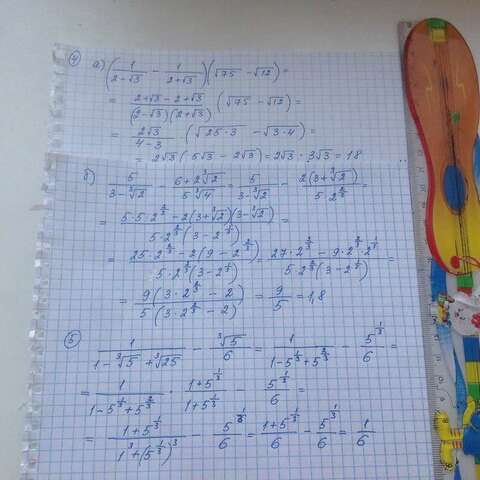 ④ а) (1/(2-√3) - 1/(2+√3))(√75 - √12) =
= (2+√3 - 2+√3)/((2-√3)(2+√3)) (√75 - √12) =
= 2√3/(4-3) (√(25·3) - √(3·4)) =
= 2√3 (5√3 - 2√3) = 2√3 · 3√3 = 18
б) 5/(3-∛2) - (6+2∛2)/(5∛4) = 5/(3-∛2) - 2(3+∛2)/(5·2^(2/3)) =
= (5·5·2^(2/3) - 2(3+∛2)(3-∛2))/(5·2^(2/3)(3-2^(1/3))) =
= (25·2^(2/3) - 2(9-2^(2/3)))/(5·2^(2/3)(3-2^(1/3))) = (27·2^(2/3) - 9·2^(2/3)·2^(1/3))/(5·2^(2/3)(3-2^(1/3))) =
= 9(3·2^(2/3) - 2)/(5(3·2^(2/3) - 2)) = 9/5 = 1,8
⑤ 1/(1-∛5+∛25) - ∛5/6 = 1/(1-5^(1/3)+5^(2/3)) - 5^(1/3)/6 =
= 1/(1-5^(1/3)+5^(2/3)) · (1+5^(1/3))/(1+5^(1/3)) - 5^(1/3)/6 =
= (1+5^(1/3))/(1³+(5^(1/3))³) - 5^(1/3)/6 = (1+5^(1/3))/6 - 5^(1/3)/6 = 1/6